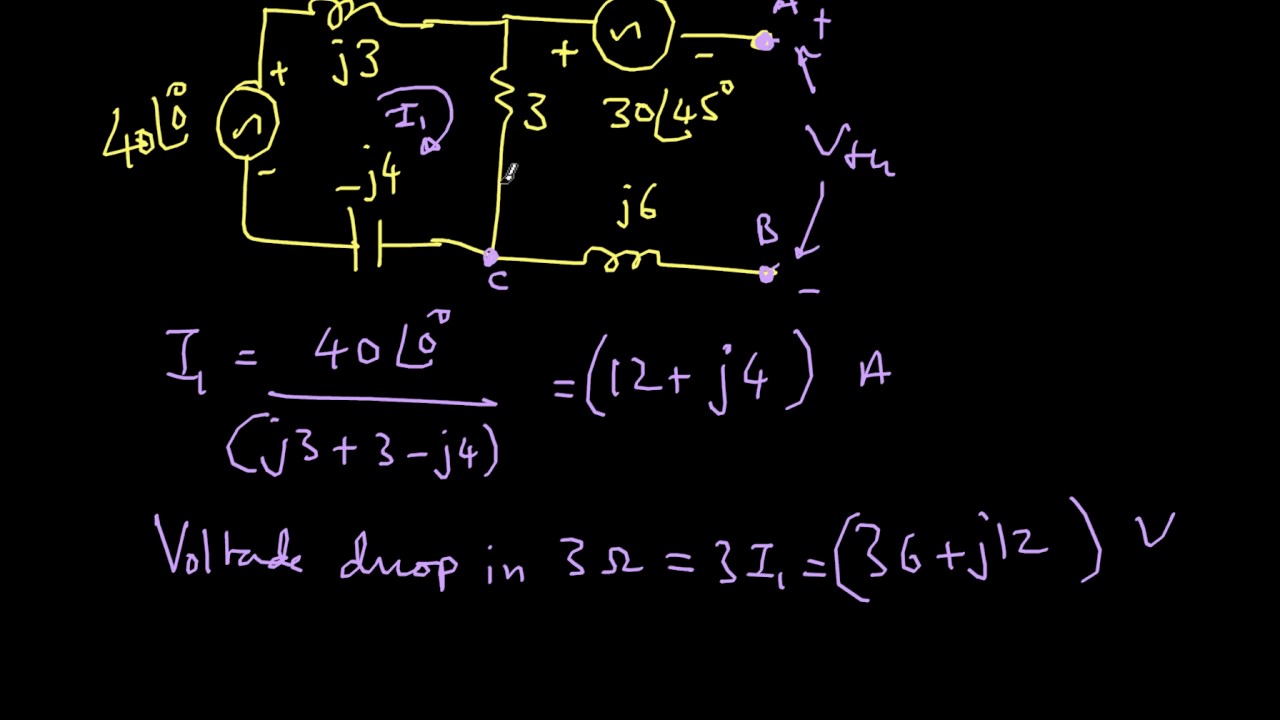 A +
j3
+ -
40∠0°
+
I₁
3
30∠45°
Vth
-
-j4
j6
B
C
-
I₁ = 40∠0° / (j3 + 3 - j4) = (12 + j4) A
Voltade drop in 3Ω = 3I₁ = (36 + j12) V